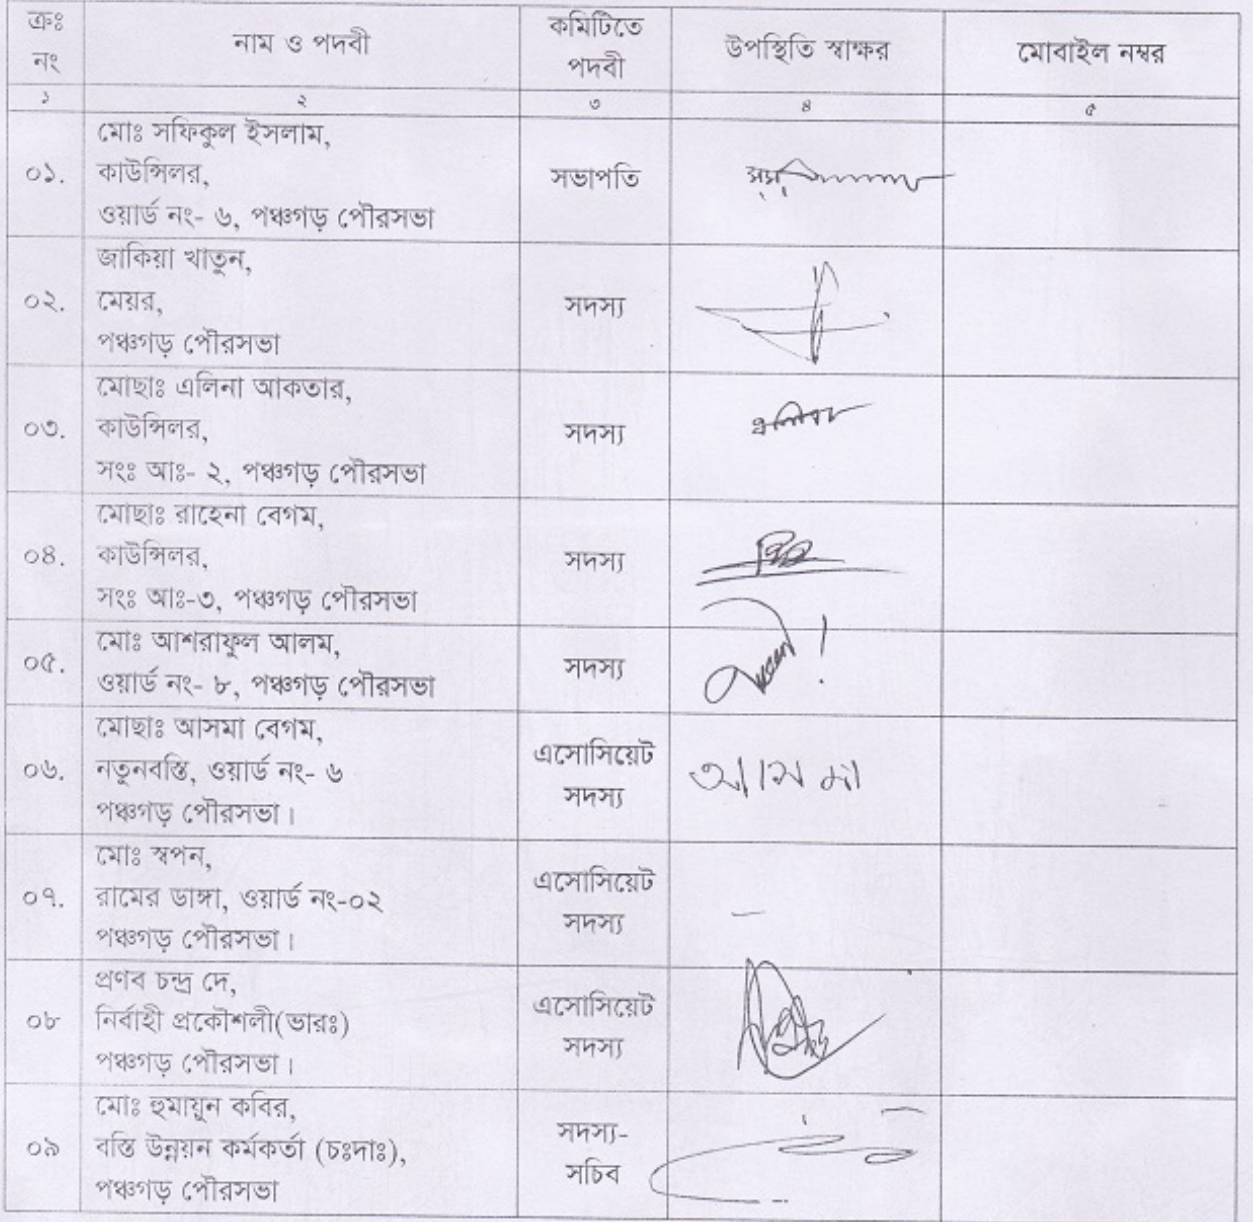 ক্রঃ নং নাম ও পদবী কমিটিতে পদবী উপস্থিতি স্বাক্ষর মোবাইল নম্বর
১ ২ ৩ ৪ ৫
০১. মোঃ সফিকুল ইসলাম,
কাউন্সিলর,
ওয়ার্ড নং- ৬, পঞ্চগড় পৌরসভা
সভাপতি
০২. জাকিয়া খাতুন,
মেয়র,
পঞ্চগড় পৌরসভা
সদস্য
০৩. মোছাঃ এলিনা আকতার,
কাউন্সিলর,
সংঃ আঃ- ২, পঞ্চগড় পৌরসভা
সদস্য
এলিনা
০৪. মোছাঃ রাহেনা বেগম,
কাউন্সিলর,
সংঃ আঃ-৩, পঞ্চগড় পৌরসভা
সদস্য
০৫. মোঃ আশরাফুল আলম,
ওয়ার্ড নং- ৮, পঞ্চগড় পৌরসভা
সদস্য
০৬. মোছাঃ আসমা বেগম,
নতুনবস্তি, ওয়ার্ড নং- ৬
পঞ্চগড় পৌরসভা।
এসোসিয়েট
সদস্য
আসমা
০৭. মোঃ স্বপন,
রামের ডাঙ্গা, ওয়ার্ড নং-০২
পঞ্চগড় পৌরসভা।
এসোসিয়েট
সদস্য
০৮ প্রণব চন্দ্র দে,
নির্বাহী প্রকৌশলী(ভারঃ)
পঞ্চগড় পৌরসভা।
এসোসিয়েট
সদস্য
০৯ মোঃ হুমায়ুন কবির,
বস্তি উন্নয়ন কর্মকর্তা (চঃদাঃ),
পঞ্চগড় পৌরসভা
সদস্য-
সচিব